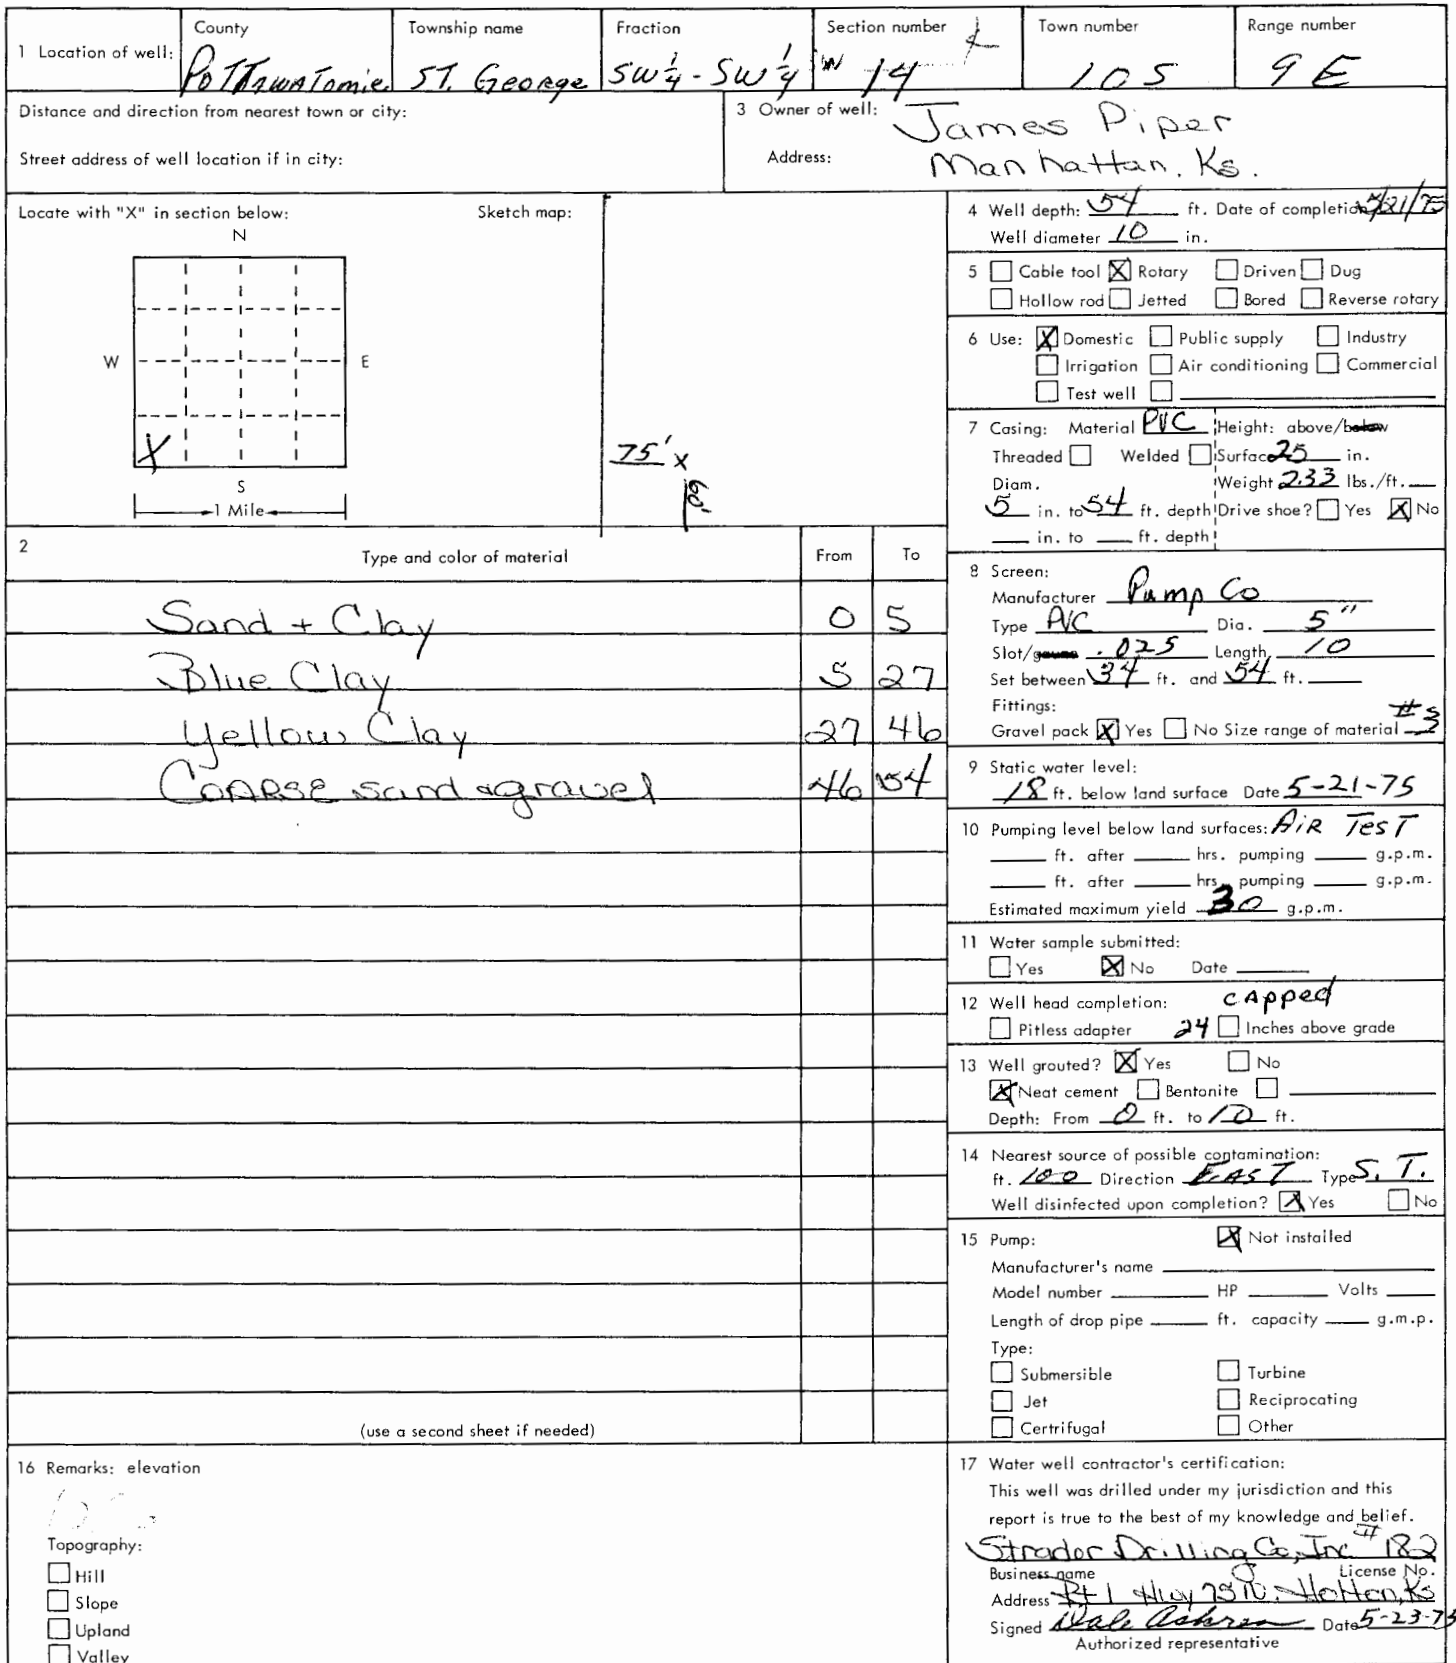 1 Location of well: County Township name Fraction Section number Town number Range number
PoTTawaTomie ST. George SW 1/4 - SW 1/4 W 14 10S 9E
Distance and direction from nearest town or city:
Street address of well location if in city:
3 Owner of well: James Piper
Address: Manhattan, Ks.
Locate with "X" in section below: Sketch map:
N
W E
X
S
1 Mile
75' x
60'
2 Type and color of material From To
Sand + Clay 0 5
Blue Clay 5 27
Yellow Clay 27 46
Coarse sand & gravel 46 54
(use a second sheet if needed)
4 Well depth: 54 ft. Date of completion 5/21/75
Well diameter 10 in.
5 Cable tool X Rotary Driven Dug
Hollow rod Jetted Bored Reverse rotary
6 Use: X Domestic Public supply Industry
Irrigation Air conditioning Commercial
Test well
7 Casing: Material PVC Height: above/below
Threaded Welded Surface 25 in.
Diam. Weight 2.33 lbs./ft.
5 in. to 54 ft. depth Drive shoe? Yes X No
in. to ft. depth
8 Screen:
Manufacturer Pump Co
Type PVC Dia. 5"
Slot/gauze .025 Length 10
Set between 34 ft. and 54 ft.
Fittings:
Gravel pack X Yes No Size range of material #3
9 Static water level:
18 ft. below land surface Date 5-21-75
10 Pumping level below land surfaces: AiR TesT
ft. after hrs. pumping g.p.m.
ft. after hrs. pumping g.p.m.
Estimated maximum yield 30 g.p.m.
11 Water sample submitted:
Yes X No Date
12 Well head completion: capped
Pitless adapter 24 Inches above grade
13 Well grouted? X Yes No
X Neat cement Bentonite
Depth: From 0 ft. to 10 ft.
14 Nearest source of possible contamination:
ft. 100 Direction EAST Type S. T.
Well disinfected upon completion? X Yes No
15 Pump: X Not installed
Manufacturer's name
Model number HP Volts
Length of drop pipe ft. capacity g.m.p.
Type:
Submersible Turbine
Jet Reciprocating
Certrifugal Other
16 Remarks: elevation
Topography:
Hill
Slope
Upland
Valley
17 Water well contractor's certification:
This well was drilled under my jurisdiction and this
report is true to the best of my knowledge and belief.
Strader Drilling Co, Inc #182
Business name License No.
Address Rt 1 Hwy 75 N. Holton, Ks
Signed Dale Date 5-23-75
Authorized representative